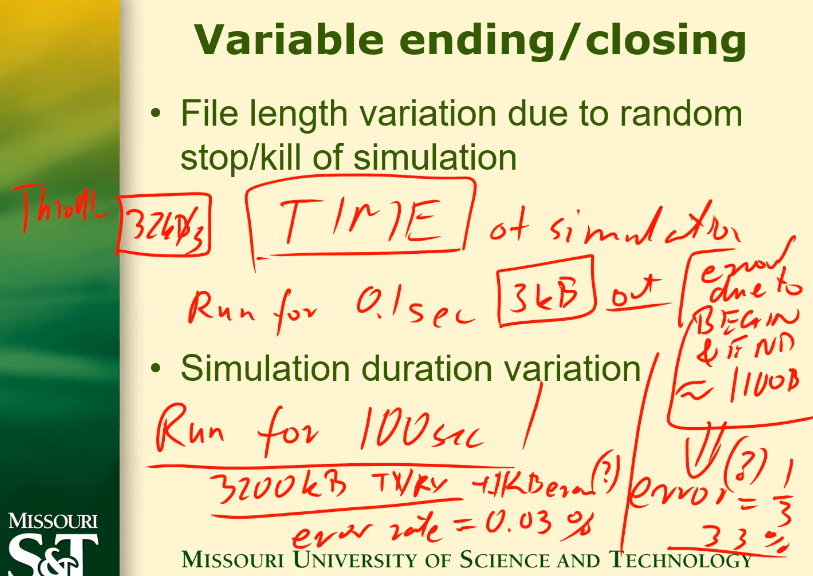 Variable ending/closing
• File length variation due to random
stop/kill of simulation
32kB/s
TIME
of simulation
Run for 0.1sec
3kB
out
error
due to
BEGIN
& END
≈ 1100B
• Simulation duration variation
Run for 100sec
3200kB TX/RX +1KB error (?)
error rate = 0.03 %
(?)
error = 1/3
33%
MISSOURI
S&T
MISSOURI UNIVERSITY OF SCIENCE AND TECHNOLOGY